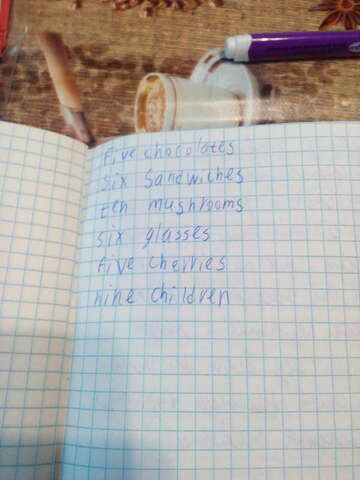 five chocolates
six sandwiches
ten mushrooms
six glasses
five cherries
nine children